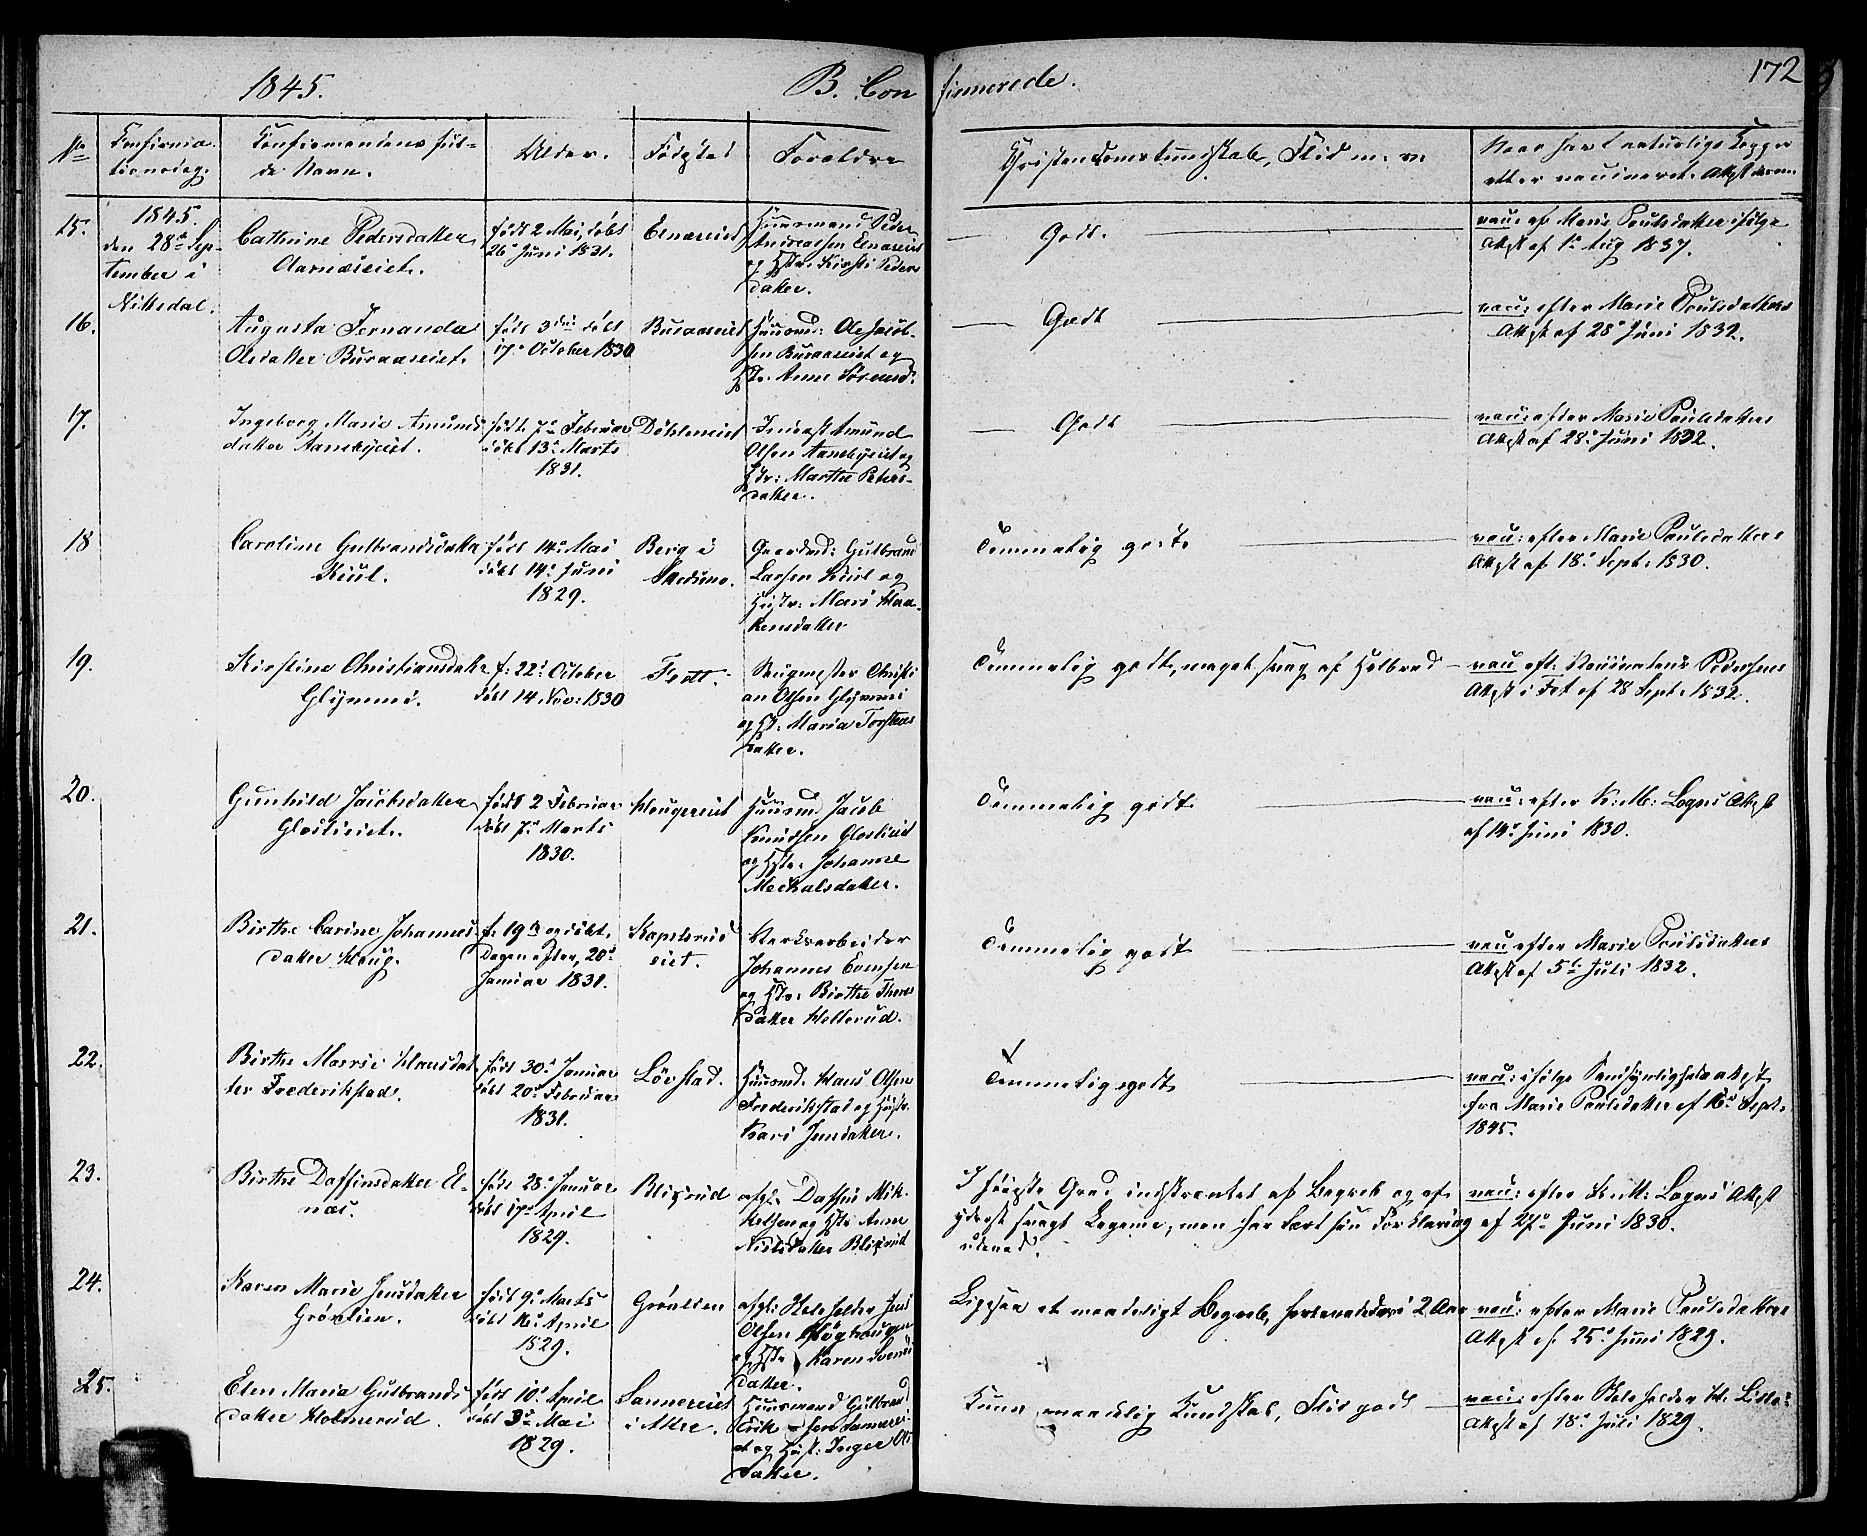 1845.
B. Con firmerede.
172
No
Confirma-
tionsdag.
Confirmandens ful-
de Navn.
Alder.
Fødested
Forældre
Christendomskundskab, Flid m. v.
Naar havt naturlige Kopper
eller vaccineret. Attest derom
15.
1845.
den 28de Sep-
tember i
Nittedal.
Cathrine Pedersdatter
Aarnæseiet.
født 2 Mai, døbt
26de Juni 1831.
Huusmand Peder
og Hstr. Kirsti Peders
datter.
Godt.
vacc. af Marie Poulsdatter ifølge
Attest af 1ste Aug 1837.
16.
Augusta Fernanda
Olsdatter Buraaseiet.
født 3die døbt
17de October 1830
Buraaseiet
Huusmd: Ole Jacob-
sen Buraaseiet og
Hstr. Anne Sørensd.
Godt
vacc: efter Marie Poulsdatters
Attest af 28de Juni 1832.
17.
Ingeborg Marie Amunds
datter
født 7de Februar
døbt 13de Marts
1831.
Døhleneiet
Inderst Amund
Olsen
Hstr: Marthe Peters-
datter.
Godt
vacc: efter Marie Poulsdatters
Attest af 28de Juni 1832.
18
Caroline Gulbrandsdatter
Kiul.
født 14de Mai
døbt 14de Juni
1829.
Berg i
Skedsmo.
Gaardmd: Gulbrand
Larsen Kiul og
Hustr: Mari Haa-
kensdatter
Temmelig godt
vacc: efter Marie Poulsdatters
Attest af 18de Sept: 1830.
19.
Kirstine Christiansdatter
Glømmi.
f: 22de October
døbt 14 Nov: 1830
Fedt.
Saugmester Christi
an Olsen Glømmi
og Hst: Maria Torstens
datter.
Temmelig godt, meget svag af Helbred
vacc. eft: Vaccinateur
Attest i Fet af 28 Sept: 1832.
20.
Gunhild Jacobsdatter
født 2 Februar
døbt 7de Marts
1830.
Haugereiet
Huusmd Jacob
Knudsen
og Hstr. Johanne
Mechalsdatter.
Temmelig godt
vacc: efter K: M: Logns Attest
af 14de Juni 1830.
21.
Birthe Carine Johannes
datter Haug.
f. 19de og døbt
Dagen efter, 20de
Januar 1831.
Kapelsrud
eiet.
Værksarbeider
Johannes Evensen
og Hstr: Birthe Thores
datter Hellerud.
Temmelig godt
vacc efter Marie Poulsdatters
Attest af 5te Juli 1832.
22.
Birthe Marie Hansdat
ter Frederikstad.
født 30de Januar
døbt 20de Februar
1831.
Løvstad.
Huusmd. Hans Olsen
Frederikstad og Hustr.
Kari Jensdatter.
Temmelig godt
vacc: ifølge Sandsynligheds attest
fra Marie Poulsdatter af 16de Sept:
1845.
23.
Birthe Daffinsdatter El-
næs.
født 28de Januar
døbt 17de April
1829.
Blixrud
afgl. Daffin Mik-
kelsen og Hstr Anne
Nielsdatter Blixrud
I høieste Grad indskrænket af Begreb og af
yderst svagt Legeme, men har lært sin Forklaring
udenad.
vacc: efter K: M: Logns Attest
af 27de Juni 1830.
24.
Karen Marie Jensdatter
Grønlien.
født 9de Marts
døbt 16de April
1829.
Grønlien
Jens
Olsen Høghaugen
og Hstr Karen Svends
datter.
Ligesaa et maadeligt Begreb, i 2 Aar
vacc: efter Marie Poulsdatters
Attest af 25de Juni 1829.
25.
Elen Maria Gulbrands
datter Holmerud.
født 10de April
døbt 3de Mai
1829.
Sannereiet
i Aker.
Huusmand Gulbrand
Erik-sen Sannerei-
et og Hust: Inger Ols
datter.
Kuns maadelig Kundskab, Flid godt
vacc: efter
Attest af 18de Juli 1829.